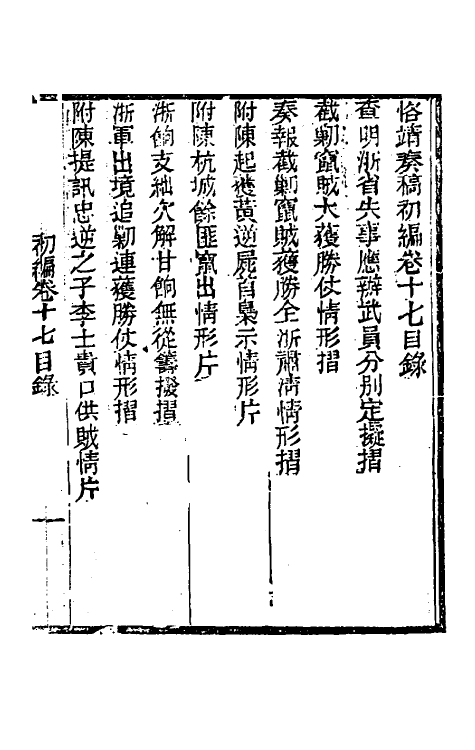 恪靖奏稿初編卷十七目錄
查明浙省失事應辦武員分別定擬摺
截剿竄賊大獲勝仗情形摺
奏報截剿竄賊獲勝全浙肅清情形摺
附陳起獲黃逆屍首梟示情形片
附陳杭城餘匪竄出情形片
浙餉支絀欠解甘餉無從籌撥摺
浙軍出境追剿連獲勝仗情形摺
附陳提訊忠逆之子李士貴口供賊情片
初編卷十七目錄
一